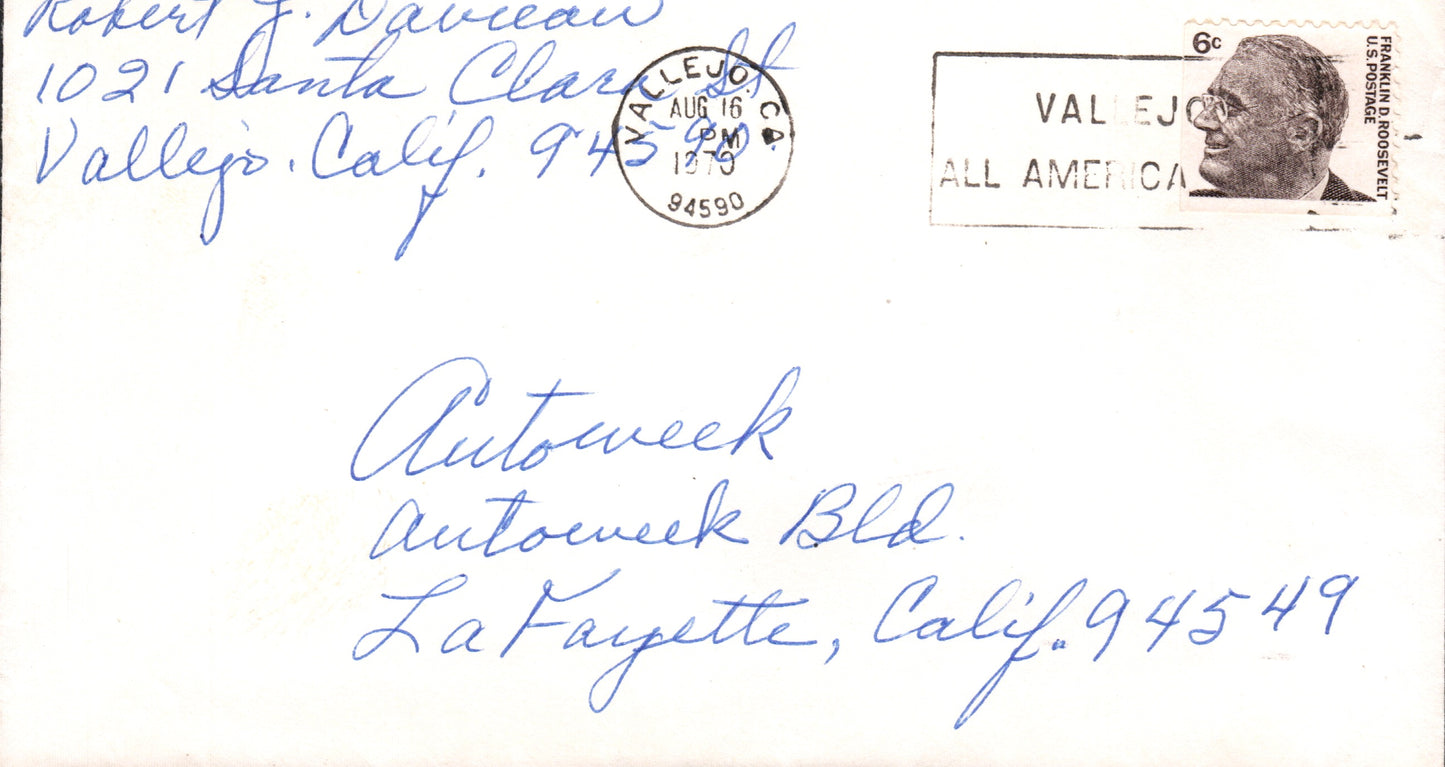 Robert J.
1021 Santa Clara St
Vallejo. Calif. 94590.
VALLEJO, CA
AUG 16
PM
1970
94590
VALLEJO
ALL AMERICA
6c
FRANKLIN D. ROOSEVELT
U.S. POSTAGE
Autoweek
Autoweek Bld.
LaFayette, Calif. 94549